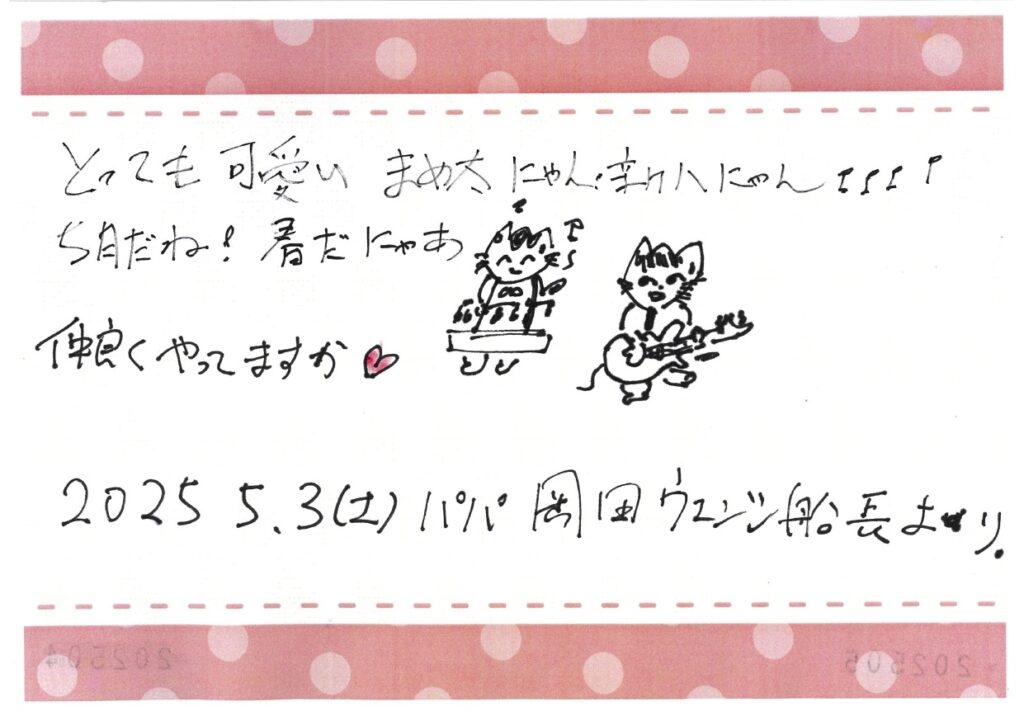 とっても 可愛い まめ大 にゃん・新ハにゃん !!!!
5月だね! 春だにゃあ
仲良くやってますか
2025 5.3(土) パパ 岡田ウエンツ船長より.
202504
202505